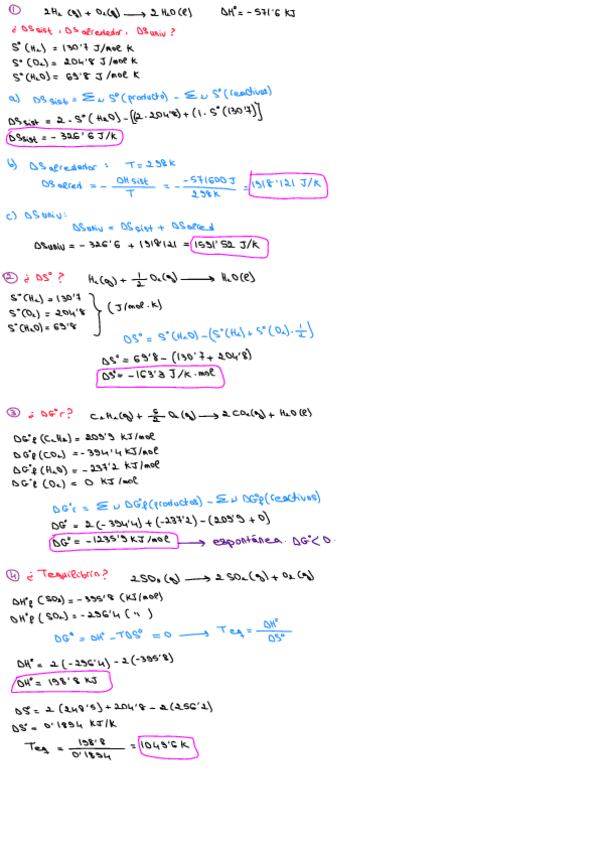 ① 2H₂(g) + O₂(g) → 2H₂O(l) ΔH° = -571'6 KJ
¿ΔSsist, ΔSalrededor, ΔSuniv?
S°(H₂) = 130'7 J/mol K
S°(O₂) = 204'8 J/mol K
S°(H₂O) = 69'8 J/mol K
a) ΔSsist = Σν S°(producto) - Σν S°(reactivos)
ΔSsist = 2·S°(H₂O) - [(2·204'8) + (1·S°(130'7)]
ΔSsist = -326'6 J/K
b) ΔSalrededor: T = 298K
ΔSalred = - ΔHsist/T = - -571600 J/298K = 1918'121 J/K
c) ΔSuniv:
ΔSuniv = ΔSsist + ΔSalred
ΔSuniv = -326'6 + 1918'121 = 1591'52 J/K
② ¿ΔS°? H₂(g) + 1/2 O₂(g) → H₂O(l)
S°(H₂) = 130'7
S°(O₂) = 204'8 } (J/mol·K)
S°(H₂O) = 69'8
ΔS° = S°(H₂O) - (S°(H₂) + S°(O₂)·1/2)
ΔS° = 69'8 - (130'7 + 204'8)
ΔS° = -163'3 J/K·mol
③ ¿ΔG°r? C₂H₂(g) + 5/2 O₂(g) → 2CO₂(g) + H₂O(l)
ΔG°f(C₂H₂) = 209'9 KJ/mol
ΔG°f(CO₂) = -394'4 KJ/mol
ΔG°f(H₂O) = -237'2 KJ/mol
ΔG°f(O₂) = 0 KJ/mol
ΔG°r = Σν ΔG°f(productos) - Σν ΔG°f(reactivos)
ΔG° = 2(-394'4) + (-237'2) - (209'9 + 0)
ΔG° = -1235'9 KJ/mol → espontánea. ΔG°<0.
④ ¿Tequilibrio? 2SO₃(g) → 2SO₂(g) + O₂(g)
ΔH°f(SO₃) = -395'8 (KJ/mol)
ΔH°f(SO₂) = -296'4 ( " )
ΔG° = ΔH° - TΔS° = 0 → Teq = ΔH°/ΔS°
ΔH° = 2(-296'4) - 2(-395'8)
ΔH° = 198'8 KJ
ΔS° = 2(248'5) + 204'8 - 2(256'2)
ΔS° = 0'1894 KJ/K
Teq = 198'8/0'1894 = 1049'6 K